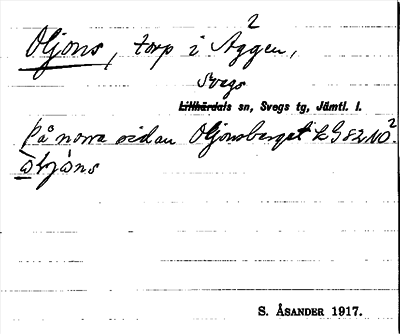 Oljons, torp i Aggen, 2
Svegs
Lillhärdals sn, Svegs tg, Jämtl. l.
På norra sidan Oljonsberget k G 82 NO 2.
S. ÅSANDER 1917.